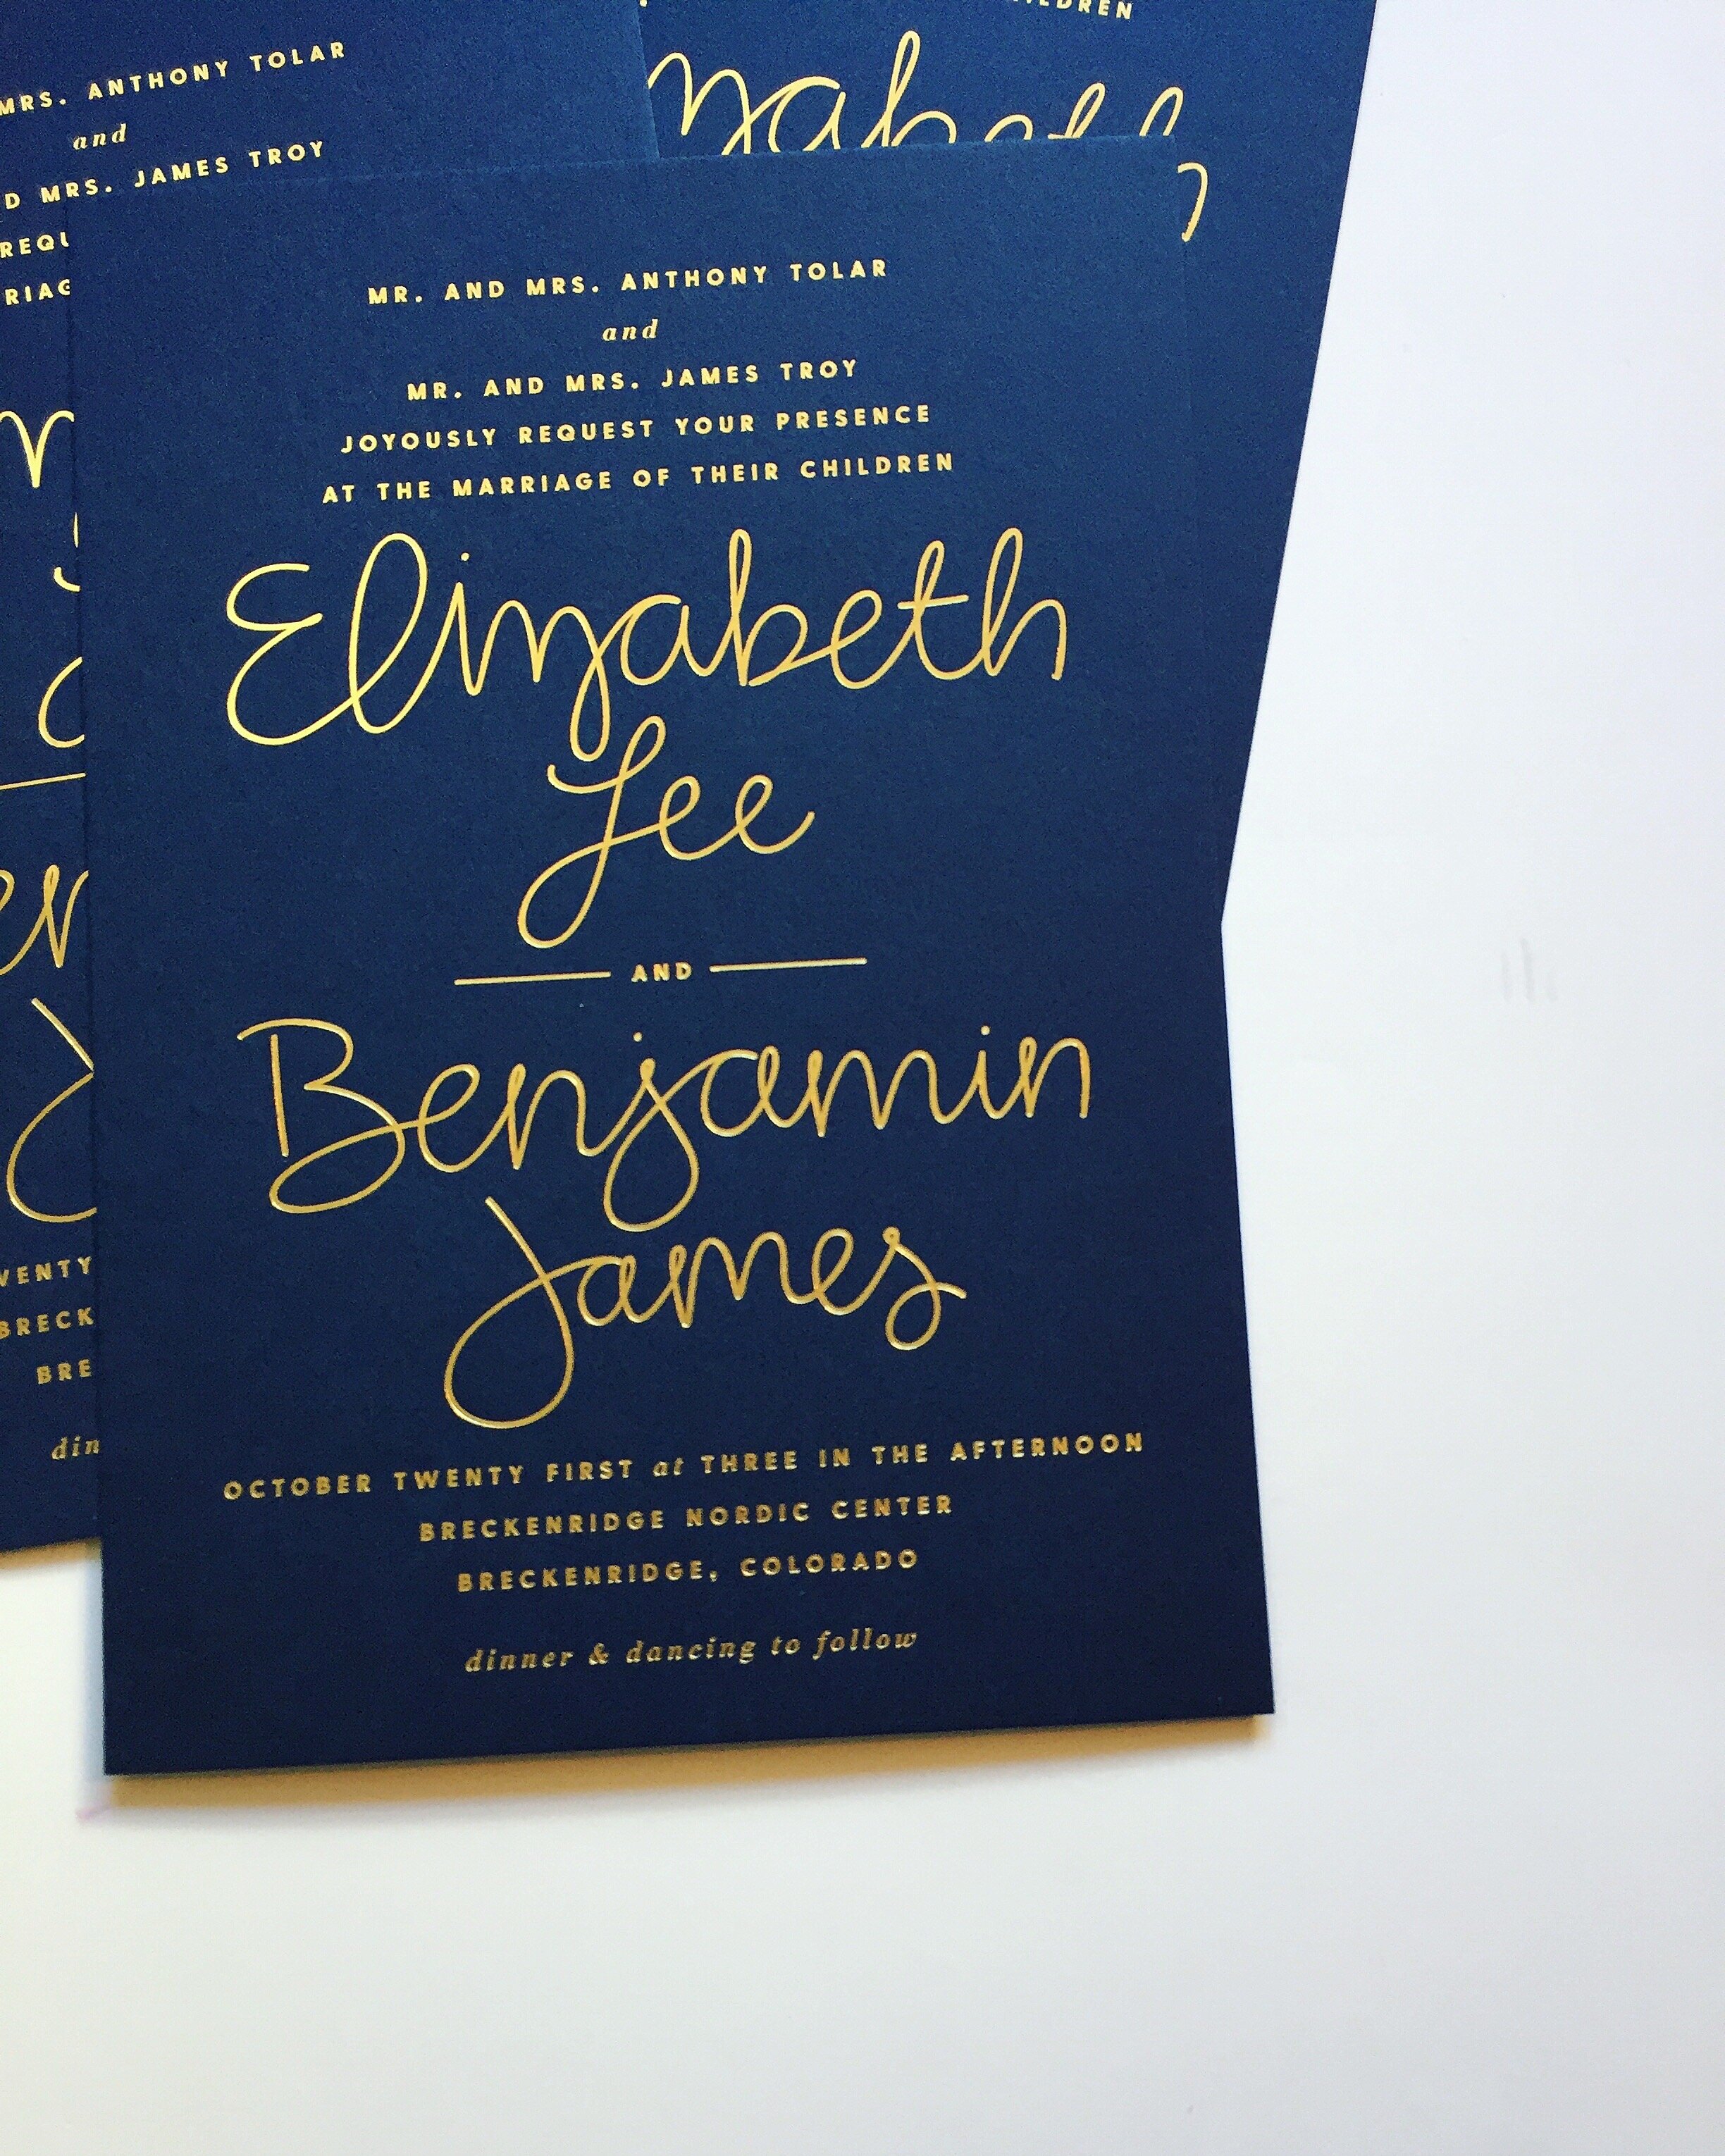 MRS. ANTHONY TOLAR
and
MRS. JAMES TROY
MR. AND MRS. ANTHONY TOLAR
and
MR. AND MRS. JAMES TROY
JOYOUSLY REQUEST YOUR PRESENCE
AT THE MARRIAGE OF THEIR CHILDREN
Elizabeth
Lee
AND
Benjamin
James
OCTOBER TWENTY FIRST at THREE IN THE AFTERNOON
BRECKENRIDGE NORDIC CENTER
BRECKENRIDGE, COLORADO
dinner & dancing to follow